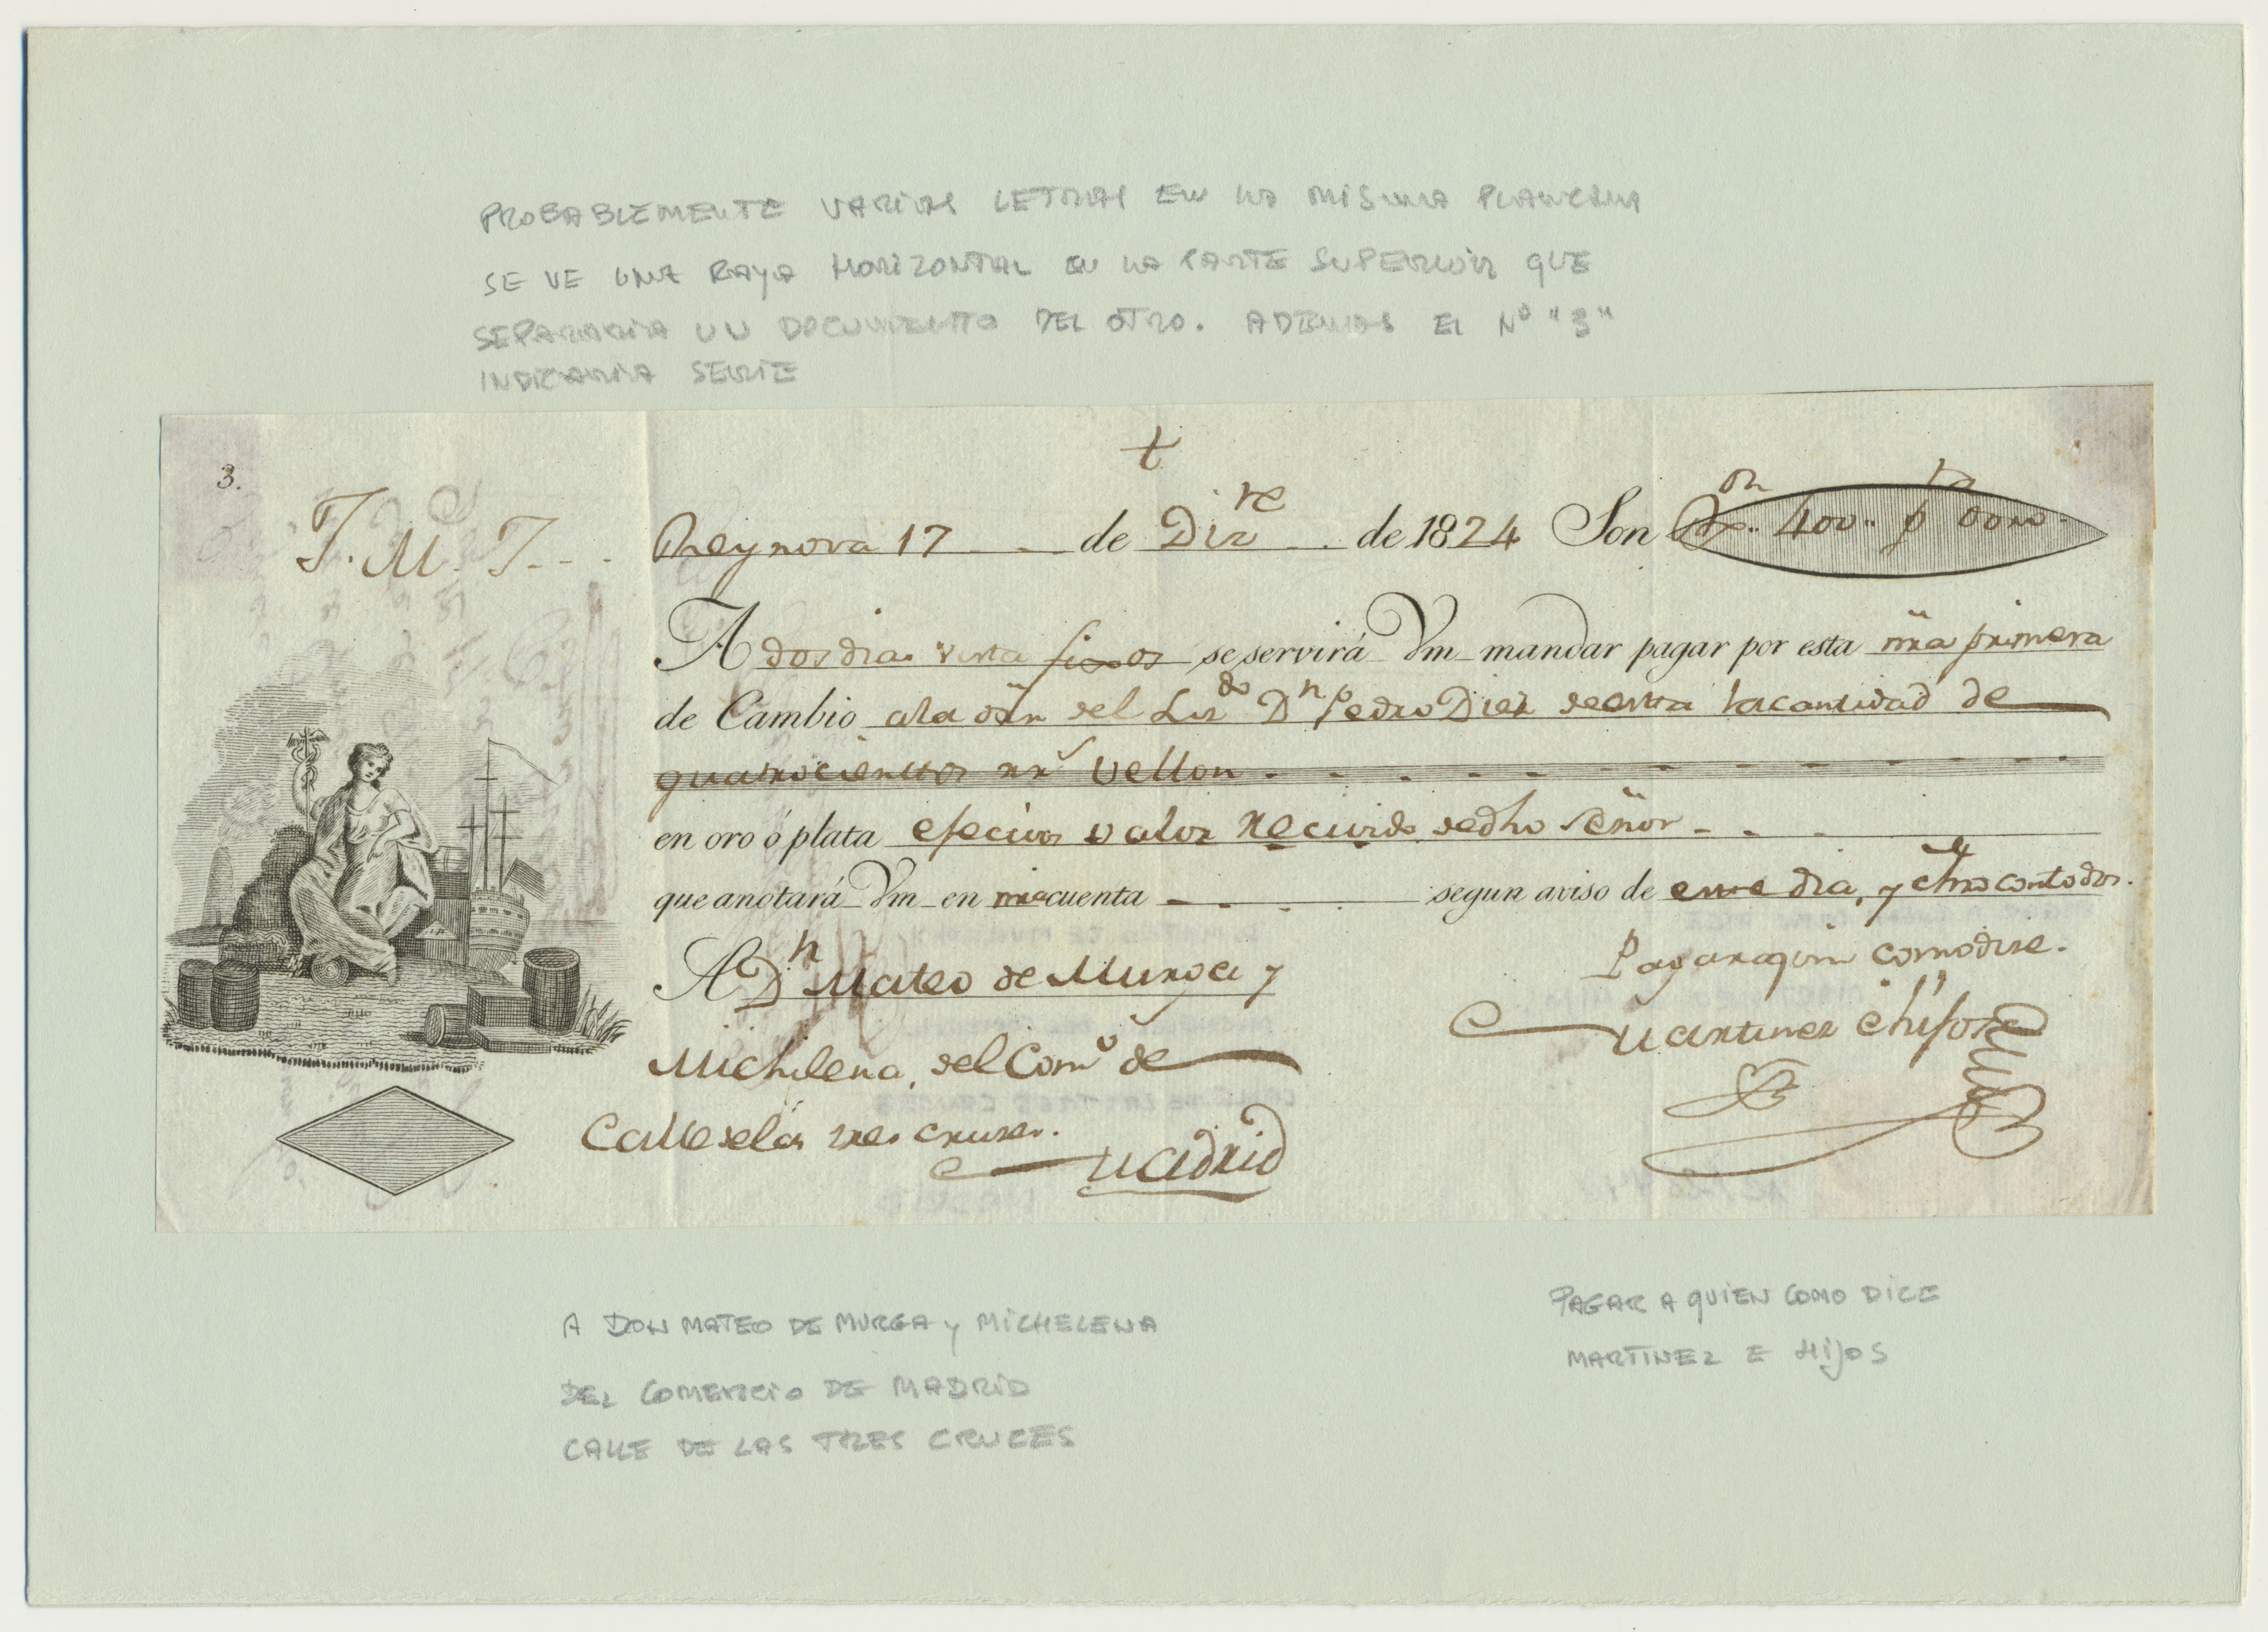 PROBABLEMENTE VARIAS LETRAS EN LA MISMA PLANCHA
SE VE UNA RAYA HORIZONTAL EN LA PARTE SUPERIOR QUE
SEPARARIA UN DOCUMENTO DEL OTRO. ADEMAS EL Nº "3"
INDICARIA SERIE
3.
T. M. T.
Reynova 17 de Dizre de 1824 Son Rxon 400
A dos dias vista fixos se servirá Vm mandar pagar por esta nra primera
de Cambio a la orn del Lizdo Dn Pedro Diez de esta la cantidad de
quatrocientos rrs vellon
en oro ó plata efectivos valor recivido de dho Señor
que anotará Vm en nra cuenta segun aviso de este dia, y
A Dn Mateo de Murga y
Michelena, del Como de
Calle de las tres cruses.
Madrid
Pagar a quien como dise.
Martinez e hijos
A DON MATEO DE MURGA Y MICHELENA
DEL COMERCIO DE MADRID
CALLE DE LAS TRES CRUCES
PAGAR A QUIEN COMO DICE
MARTINEZ E HIJOS